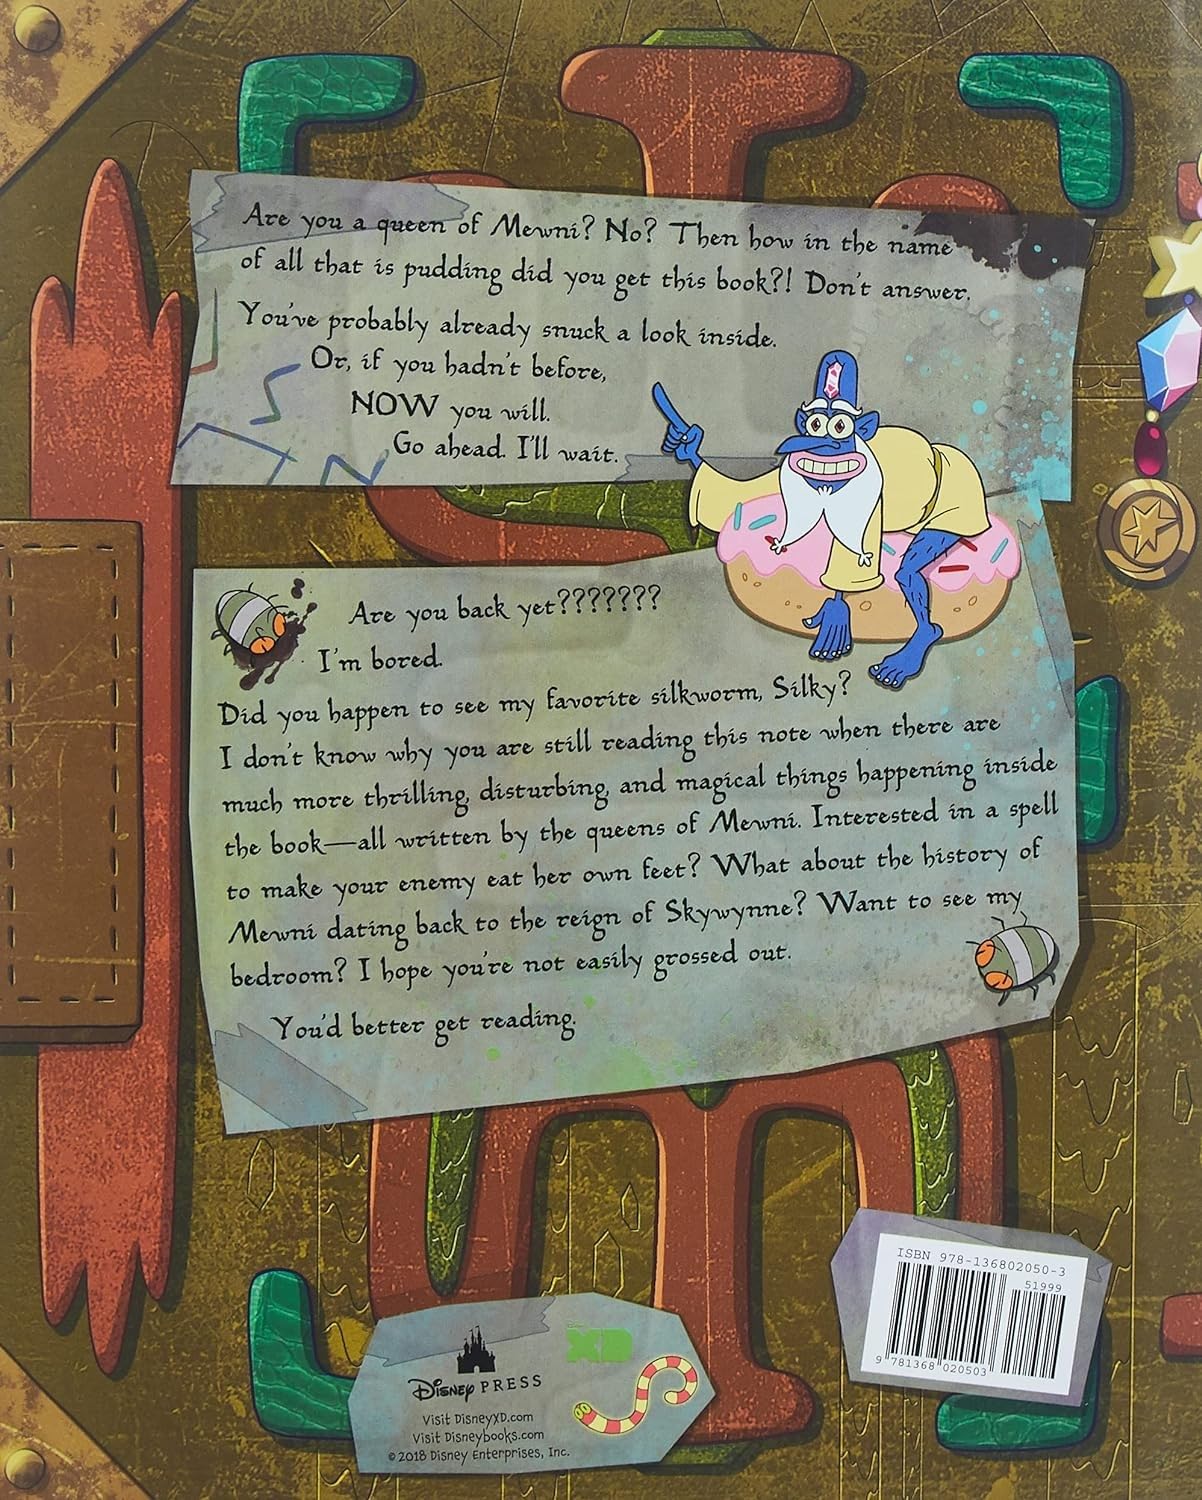 Are you a queen of Mewni? No? Then how in the name
of all that is pudding did you get this book?! Don't answer.
You've probably already snuck a look inside.
Or, if you hadn't before,
NOW you will.
Go ahead. I'll wait.
Are you back yet???????
I'm bored.
Did you happen to see my favorite silkworm, Silky?
I don't know why you are still reading this note when there are
much more thrilling, disturbing, and magical things happening inside
the book—all written by the queens of Mewni. Interested in a spell
to make your enemy eat her own feet? What about the history of
Mewni dating back to the reign of Skywynne? Want to see my
bedroom? I hope you're not easily grossed out.
You'd better get reading.
ISBN 978-136802050-3
51999
9 781368 020503
Disney PRESS
XD
Visit DisneyXD.com
Visit Disneybooks.com
© 2018 Disney Enterprises, Inc.